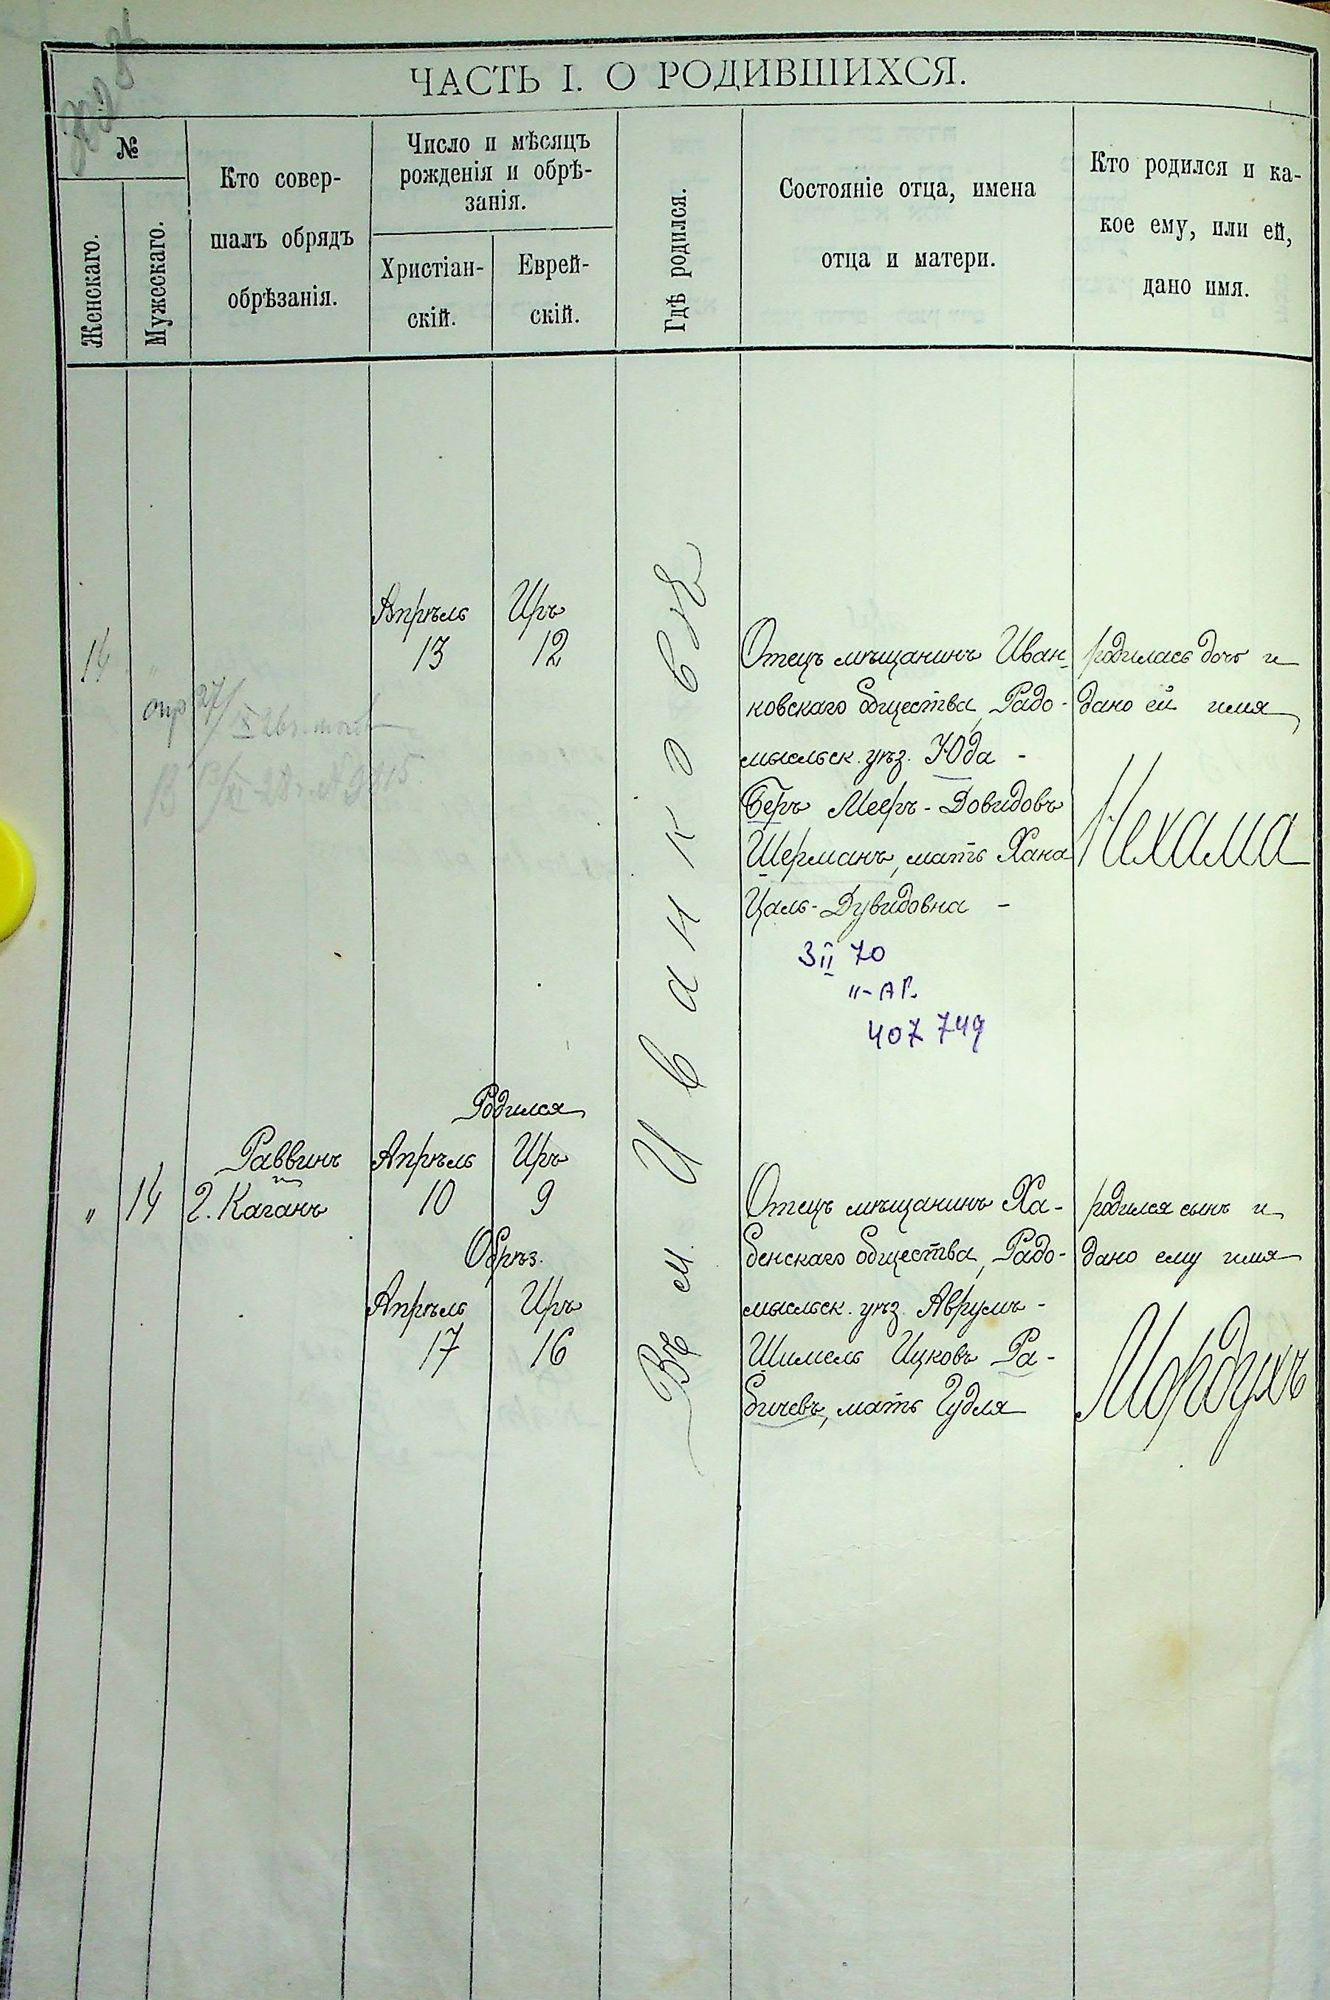 ЧАСТЬ I. О РОДИВШИХСЯ.
№
Женскаго.
Мужескаго.
Кто совер-
шалъ обрядъ
обрѣзанія.
Число и мѣсяцъ
рожденія и обрѣ-
занія.
Христіан-
скій.
Еврей-
скій.
Гдѣ родился.
Состояніе отца, имена
отца и матери.
Кто родился и ка-
кое ему, или ей,
дано имя.
14
Апрѣль Иръ
13 12
Въ м. Иванковѣ
Отецъ мѣщанинъ Иван-
ковскаго общества, Радо-
мысльск. уѣз. Юда -
Беръ Мееръ-Довидовъ
Шерманъ, мать Хана
Цаль-Дувидовна -
родилась дочь и
дано ей имя
Нехама
3 II 70
II-АР.
407 749
" 14
Раввинъ
Г. Каганъ
Родился
Апрѣль Иръ
10 9
Обрѣз.
Апрѣль Иръ
17 16
Отецъ мѣщанинъ Ха-
бенскаго общества, Радо-
мысльск. уѣз. Аврумъ-
Шимель Ицковъ Ра-
бичевъ, мать Гудля
родился сынъ и
дано ему имя
Мордухъ